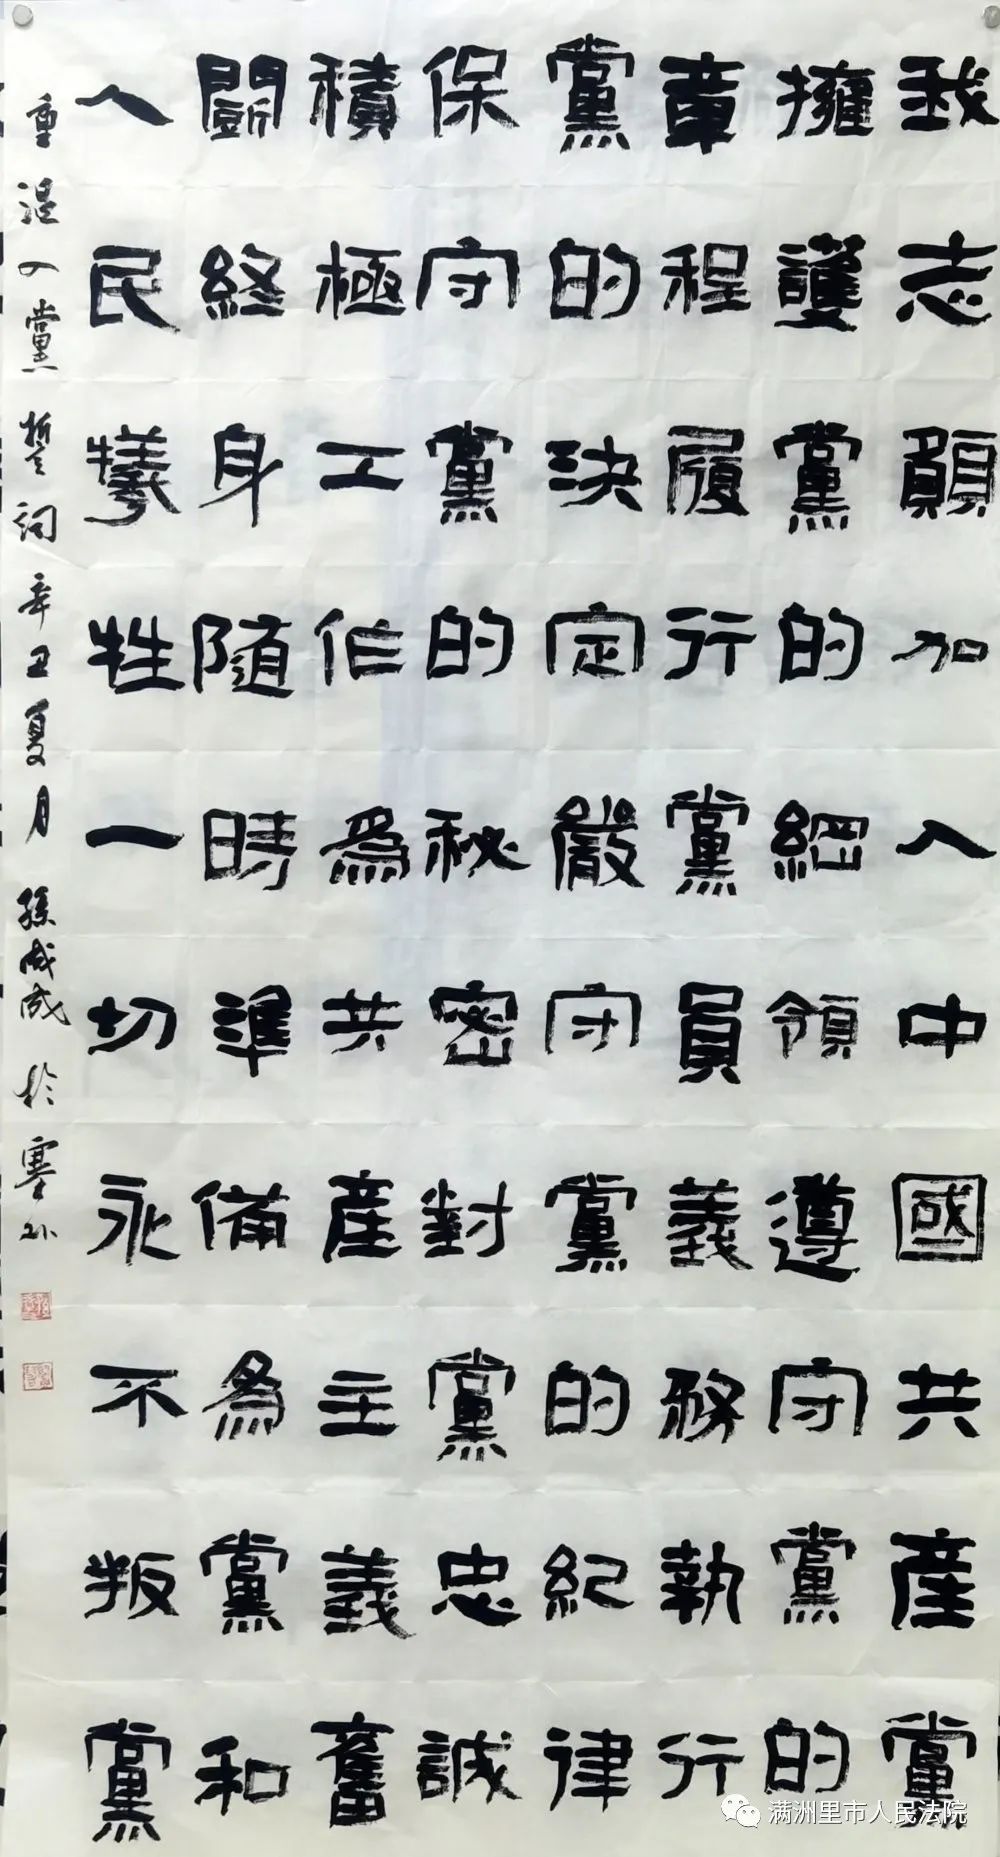 我志願加入中國共產黨
擁護黨的綱領遵守黨的
章程履行黨員義務執行
黨的決定嚴守黨的紀律
保守黨的秘密對黨忠誠
積極工作為共產主義奮
鬭終身隨時準備為黨和
人民犧牲一切永不叛黨
重溫入黨誓詞辛丑夏月孫成成於塞外
满洲里市人民法院